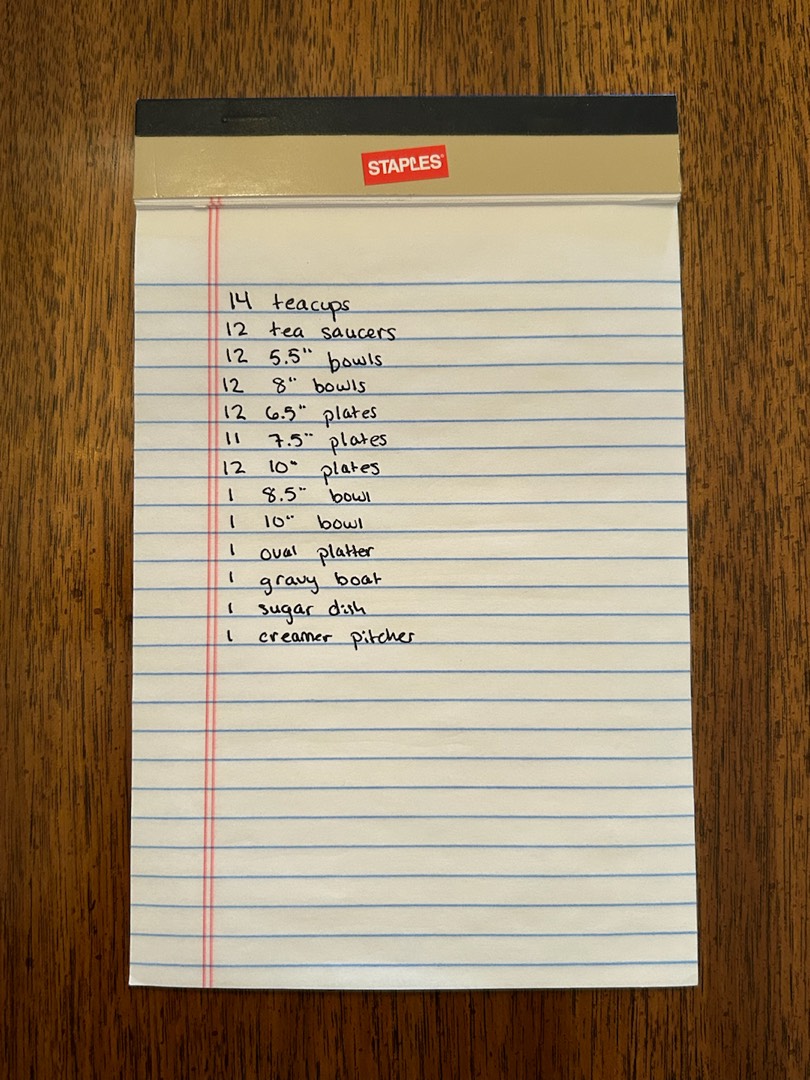 STAPLES
14 teacups
12 tea saucers
12 5.5" bowls
12 8" bowls
12 6.5" plates
11 7.5" plates
12 10" plates
1 8.5" bowl
1 10" bowl
1 oval platter
1 gravy boat
1 sugar dish
1 creamer pitcher